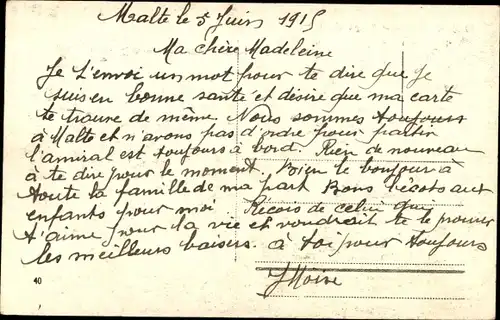 Malte le 5 Juin 1915
Ma chère Madeleine
Je t'envoi un mot pour te dire que je
suis en bonne santé et désire que ma carte
te trouve de même. Nous sommes toujours
à Malte et n'avons pas d'ordre pour partir
l'amiral est toujours à bord. Rien de nouveau
à te dire pour le moment. Bien le bonjour à
toute la famille de ma part Bons bécots aux
enfants pour moi Reçois de celui qui
t'aime pour la vie et voudrait te le prouver
les meilleurs baisers. à toi pour toujours
40